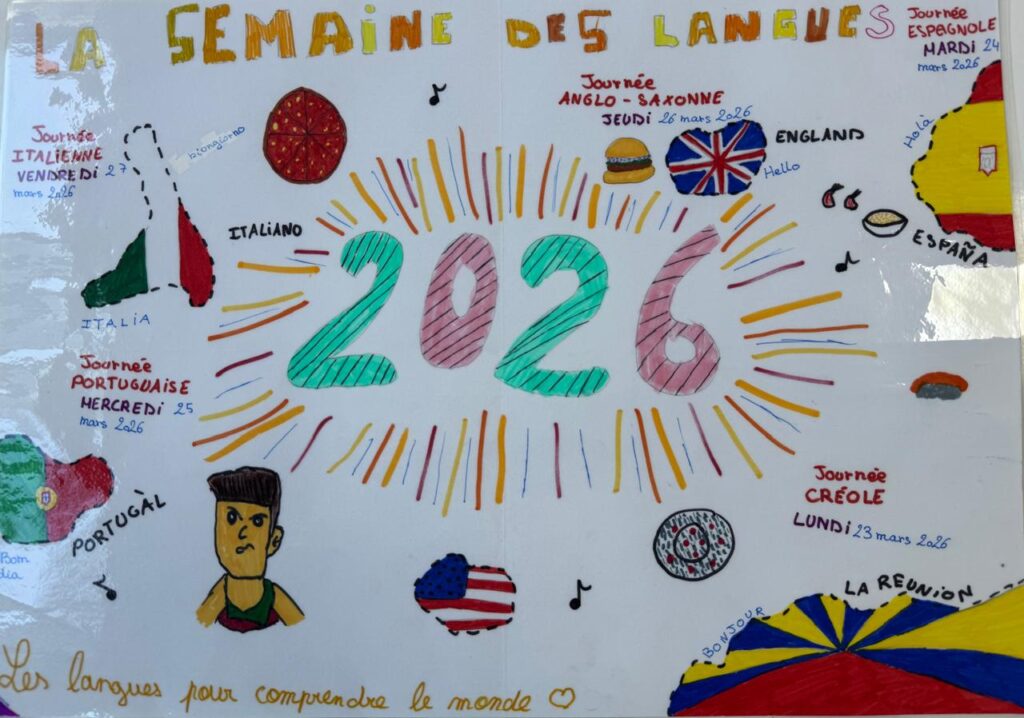 LA SEMAINE DES LANGUES
Journée
ESPAGNOLE
MARDI 24
mars 2026
Holà
ESPAÑA
Journée
ANGLO - SAXONNE
JEUDI 26 mars 2026
ENGLAND
Hello
Journée
ITALIENNE
VENDREDI 27
mars 2026
biongiorno
ITALIANO
ITALIA
2026
Journée
PORTUGUAISE
MERCREDI 25
mars 2026
PORTUGÀL
Bom
dia
Journée
CRÉOLE
LUNDI 23 mars 2026
LA REUNION
BONJOUR
Les langues pour comprendre le monde